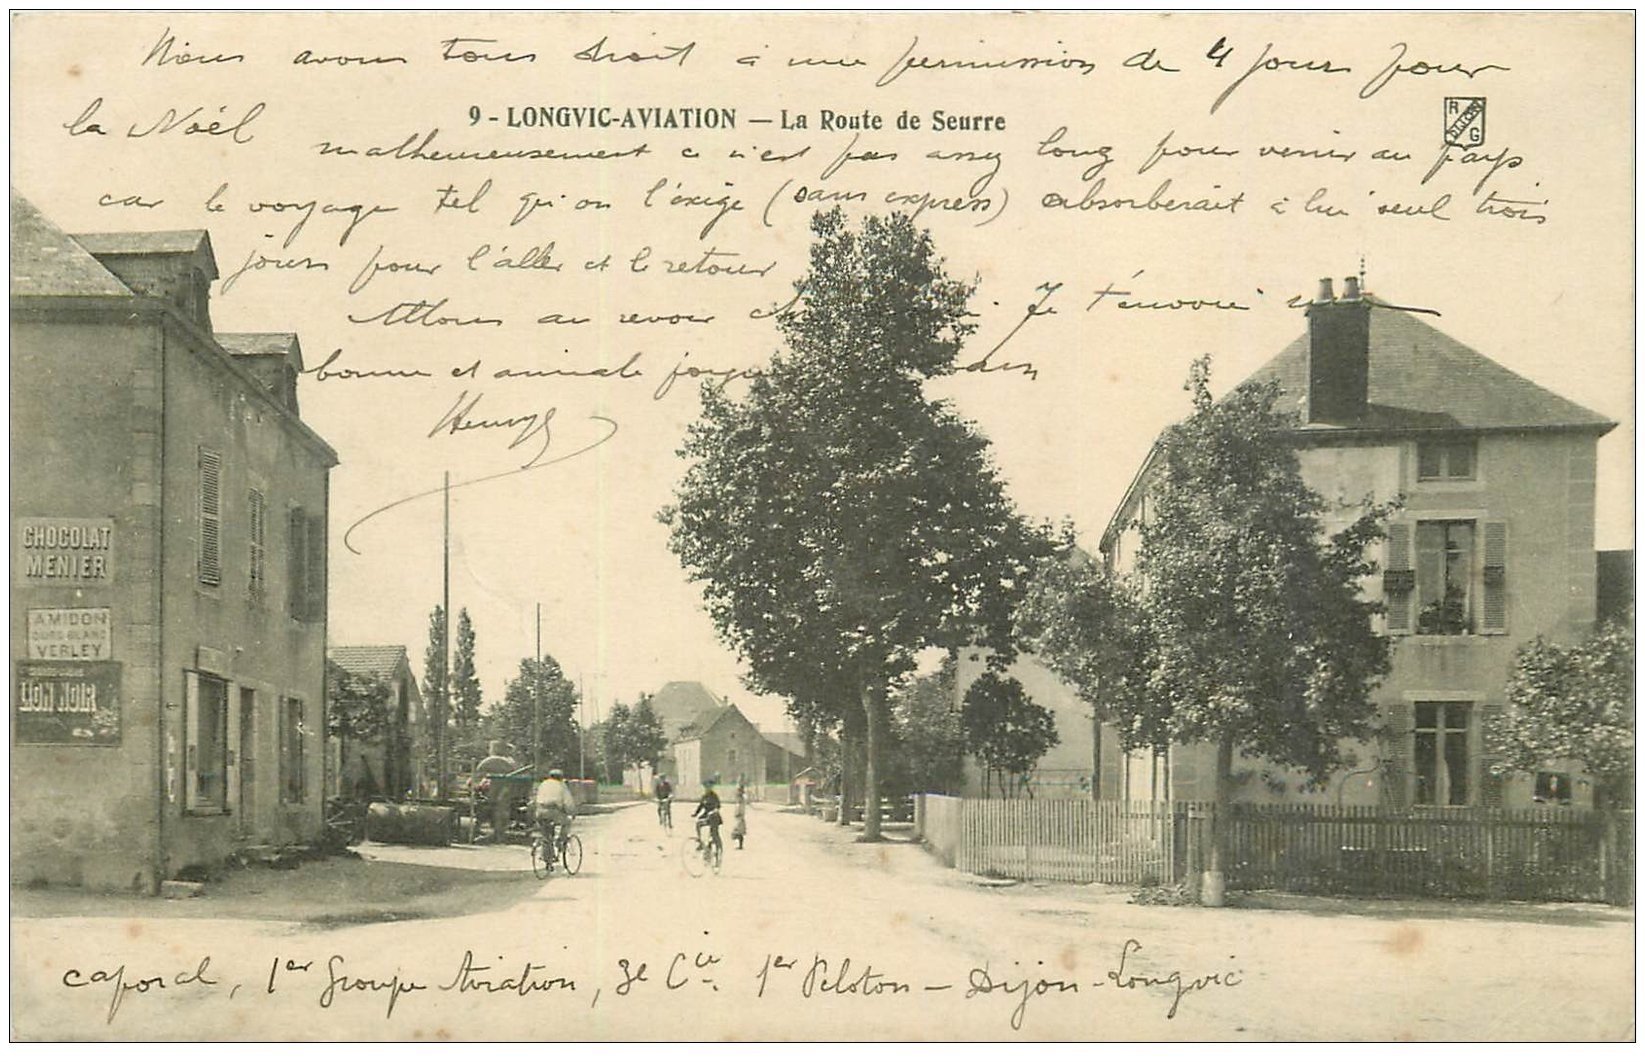 Nous avons tous droit à une permission de 4 jours pour
la Noël
9 - LONGVIC-AVIATION — La Route de Seurre
R G DIJON
malheureusement ce n'est pas assez long pour venir au pays
car le voyage tel qu'on l'exige (sans express) absorberait à lui seul trois
jours pour l'aller et le retour
Allons au revoir Je t'envoie une
bonne et amicale
Henry
CHOCOLAT
MENIER
AMIDON
OURS BLANC
VERLEY
LION NOIR
caporal, 1er Groupe Aviation, 3e Cie 1er Peloton - Dijon-Longvic